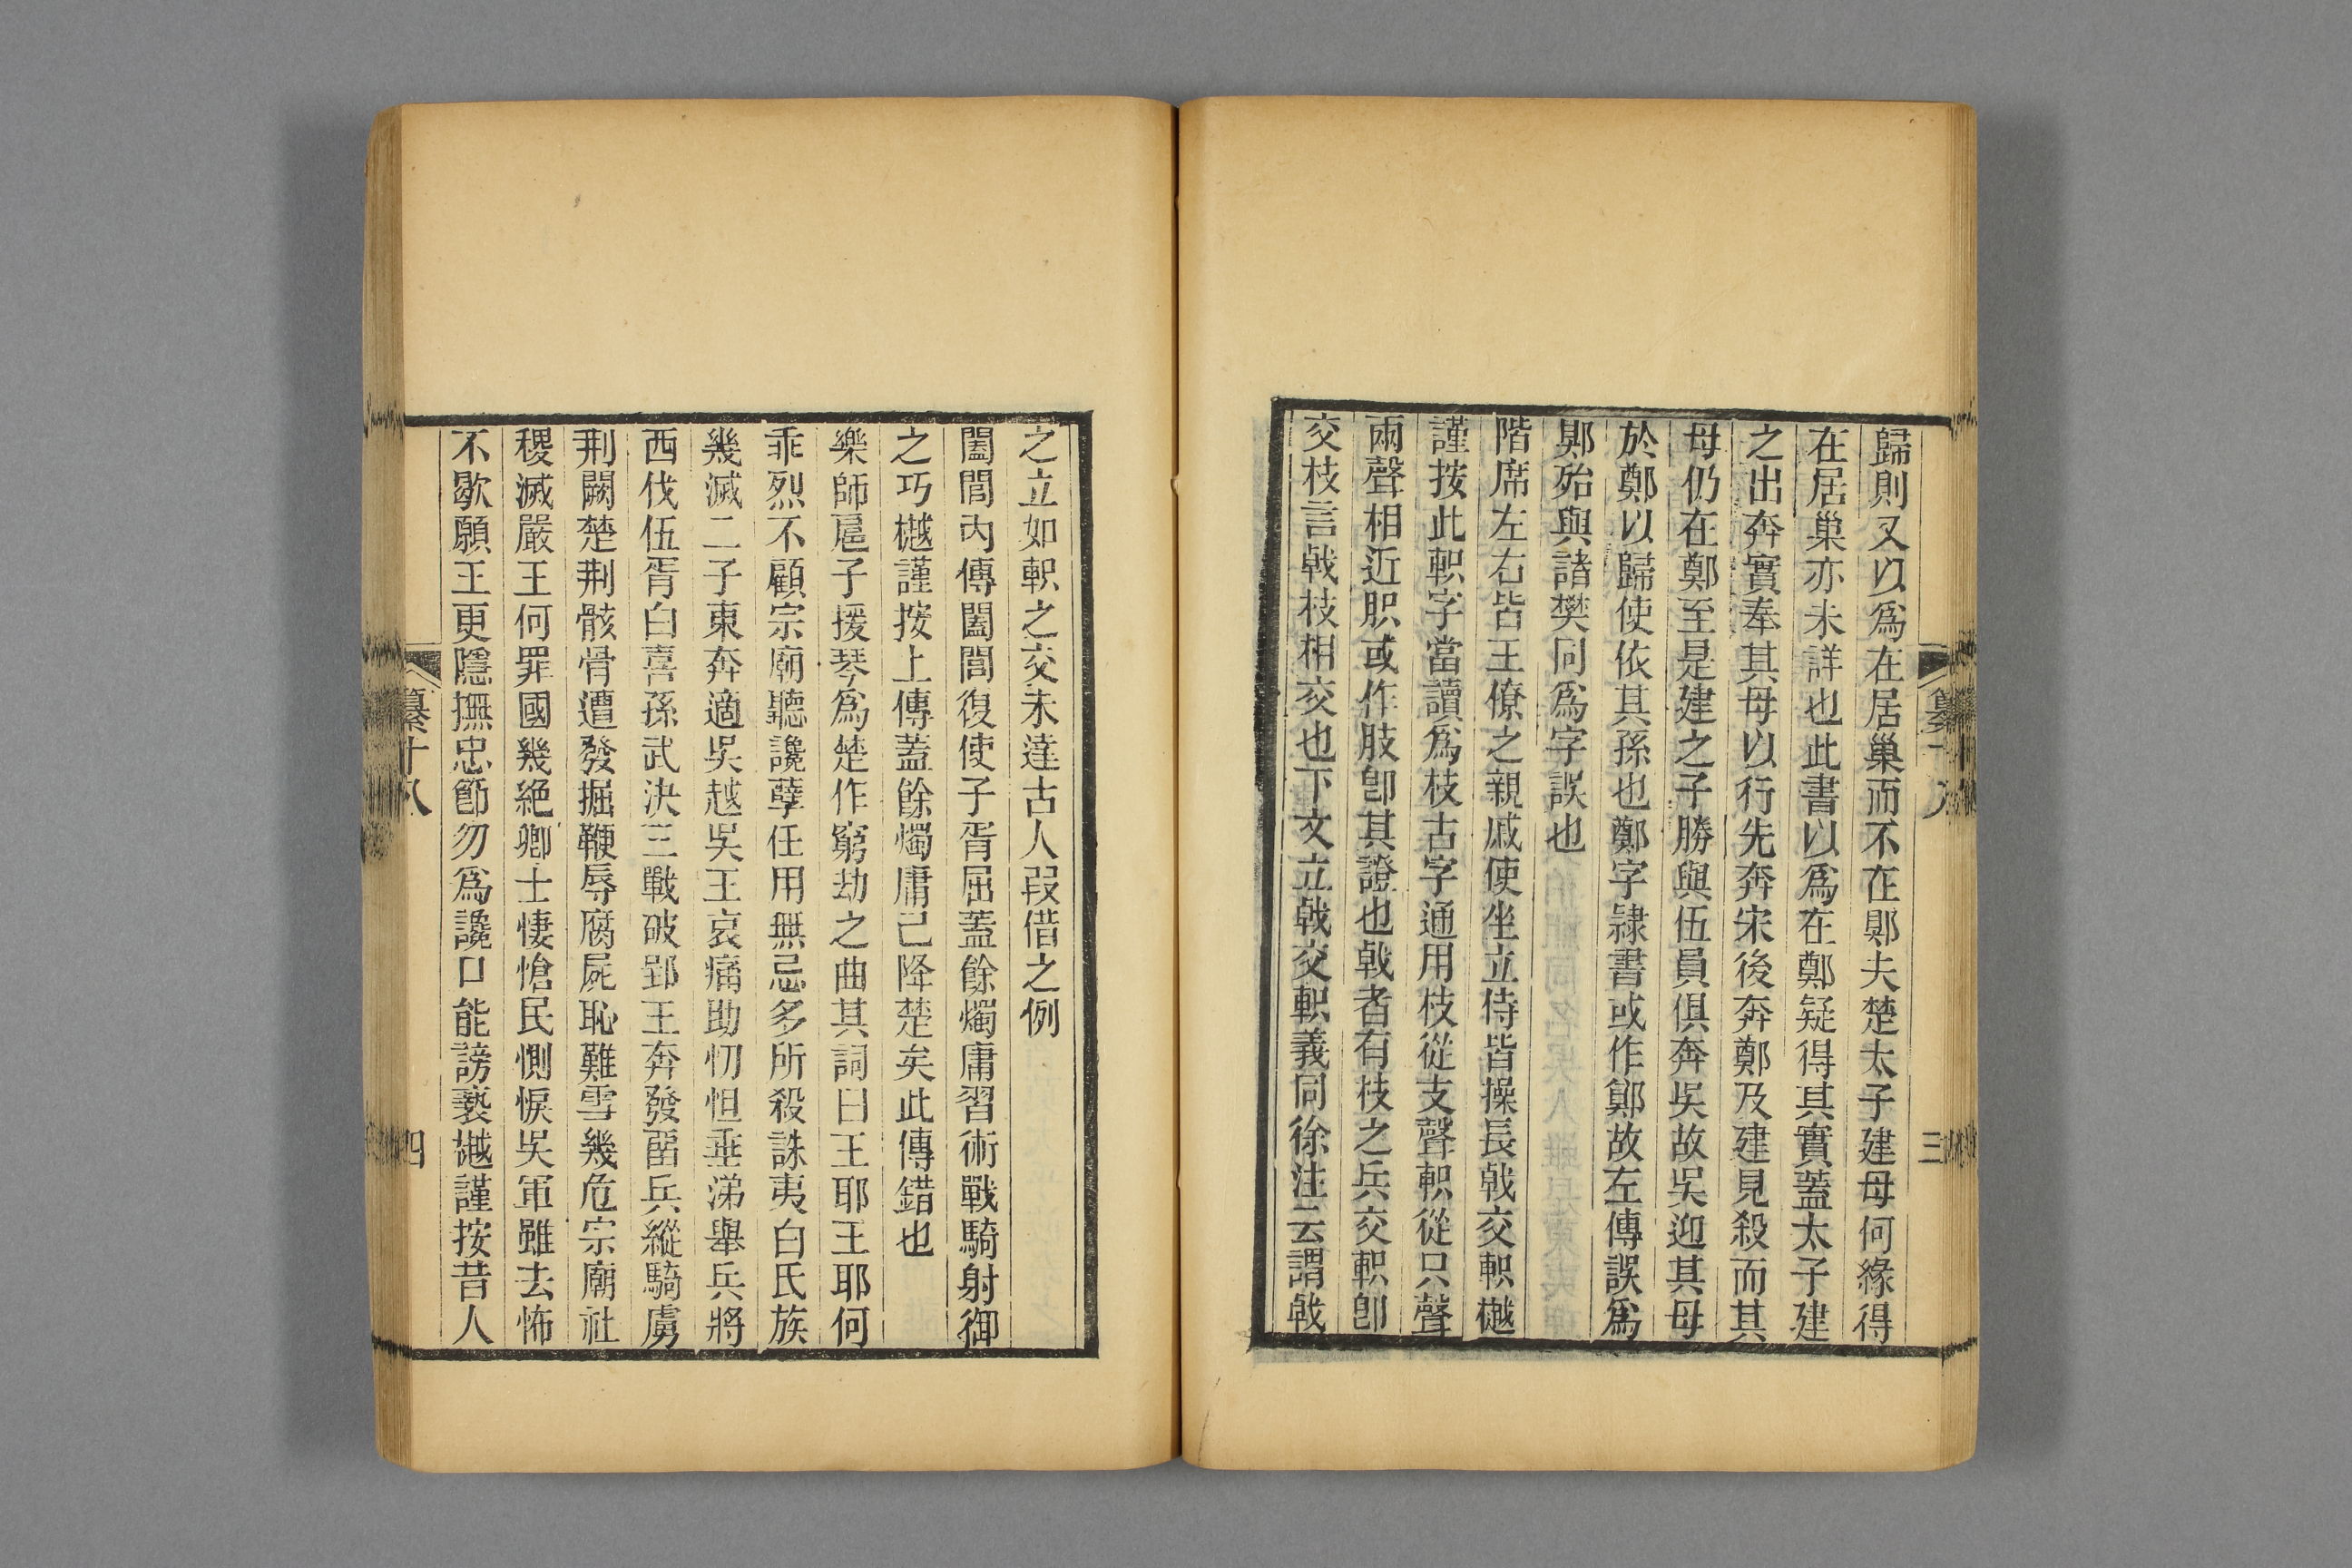 歸則又以爲在居巢而不在鄓夫楚太子建母何緣得
在居巢亦未詳也此書以爲在鄭疑得其實蓋太子建
之出奔實奉其母以行先奔宋後奔鄭及建見殺而其
母仍在鄭至是建之子勝與伍員俱奔吳故吳迎其母
於鄭以歸使依其孫也鄭字隷書或作鄓故左傳誤爲
鄓殆與諸樊同爲字誤也
階席左右皆王僚之親戚使坐立侍皆操長戟交軹樾
謹按此軹字當讀爲枝古字通用枝從支聲軹從只聲
兩聲相近胑或作肢卽其證也戟者有枝之兵交軹卽
交枝言戟枝相交也下文立戟交軹義同徐注云謂戟
纂十八
三
之立如軹之交未達古人叚借之例
闔閭內傳闔閭復使子胥屈蓋餘燭庸習術戰騎射御
之巧樾謹按上傳蓋餘燭庸已降楚矣此傳錯也
樂師扈子援琴爲楚作窮劫之曲其詞曰王耶王耶何
乖烈不顧宗廟聽讒孽任用無忌多所殺誅夷白氏族
幾滅二子東奔適吳越吳王哀痛助忉怛垂涕舉兵將
西伐伍胥白喜孫武決三戰破郢王奔發畱兵縱騎虜
荆闕楚荆骸骨遭發掘鞭辱腐屍恥難雪幾危宗廟社
稷滅嚴王何罪國幾絕卿士悽愴民惻悷吳軍雖去怖
不歇願王更隱撫忠節勿爲讒口能謗褻樾謹按昔人
纂十八
四